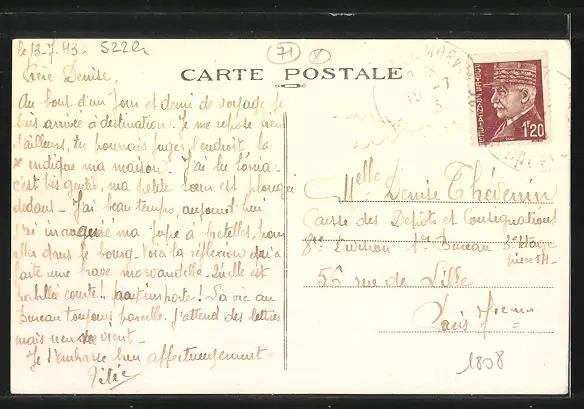 le 13-7-43- 5222
71
X
CARTE POSTALE
Chère Denise,
Au bout d'un jour et demi de voyage je
suis arrivée à destination. Je me repose bien
d'ailleurs, tu pourrais juger l'endroit la
x indique ma maison. J'ai lu
c'est très gentil, ma petite soeur est plongée
dedans - J'ai beau temps, aujourd'hui
j'ai inauguré ma jupe à bretelles, pour
aller dans le bourg. Voici la réflexion qu'a
faite une brave morvandelle - Qu'elle est
habillée courte! peut importe! La vie au
Bureau toujours pareille. J'attend des lettres
mais rien ne vient -
Je t'embrasse bien affectueusement -
1F20
Melle Denise Thévenin
Caisse des Depôts et Consignations
8e Division 1er Bureau 3e étage
pièce
56 rue de Lille
Paris 7eme
1808